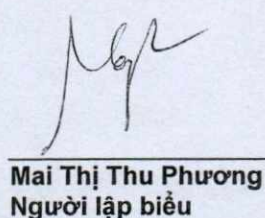 Mai Thị Thu Phương
Người lập biểu